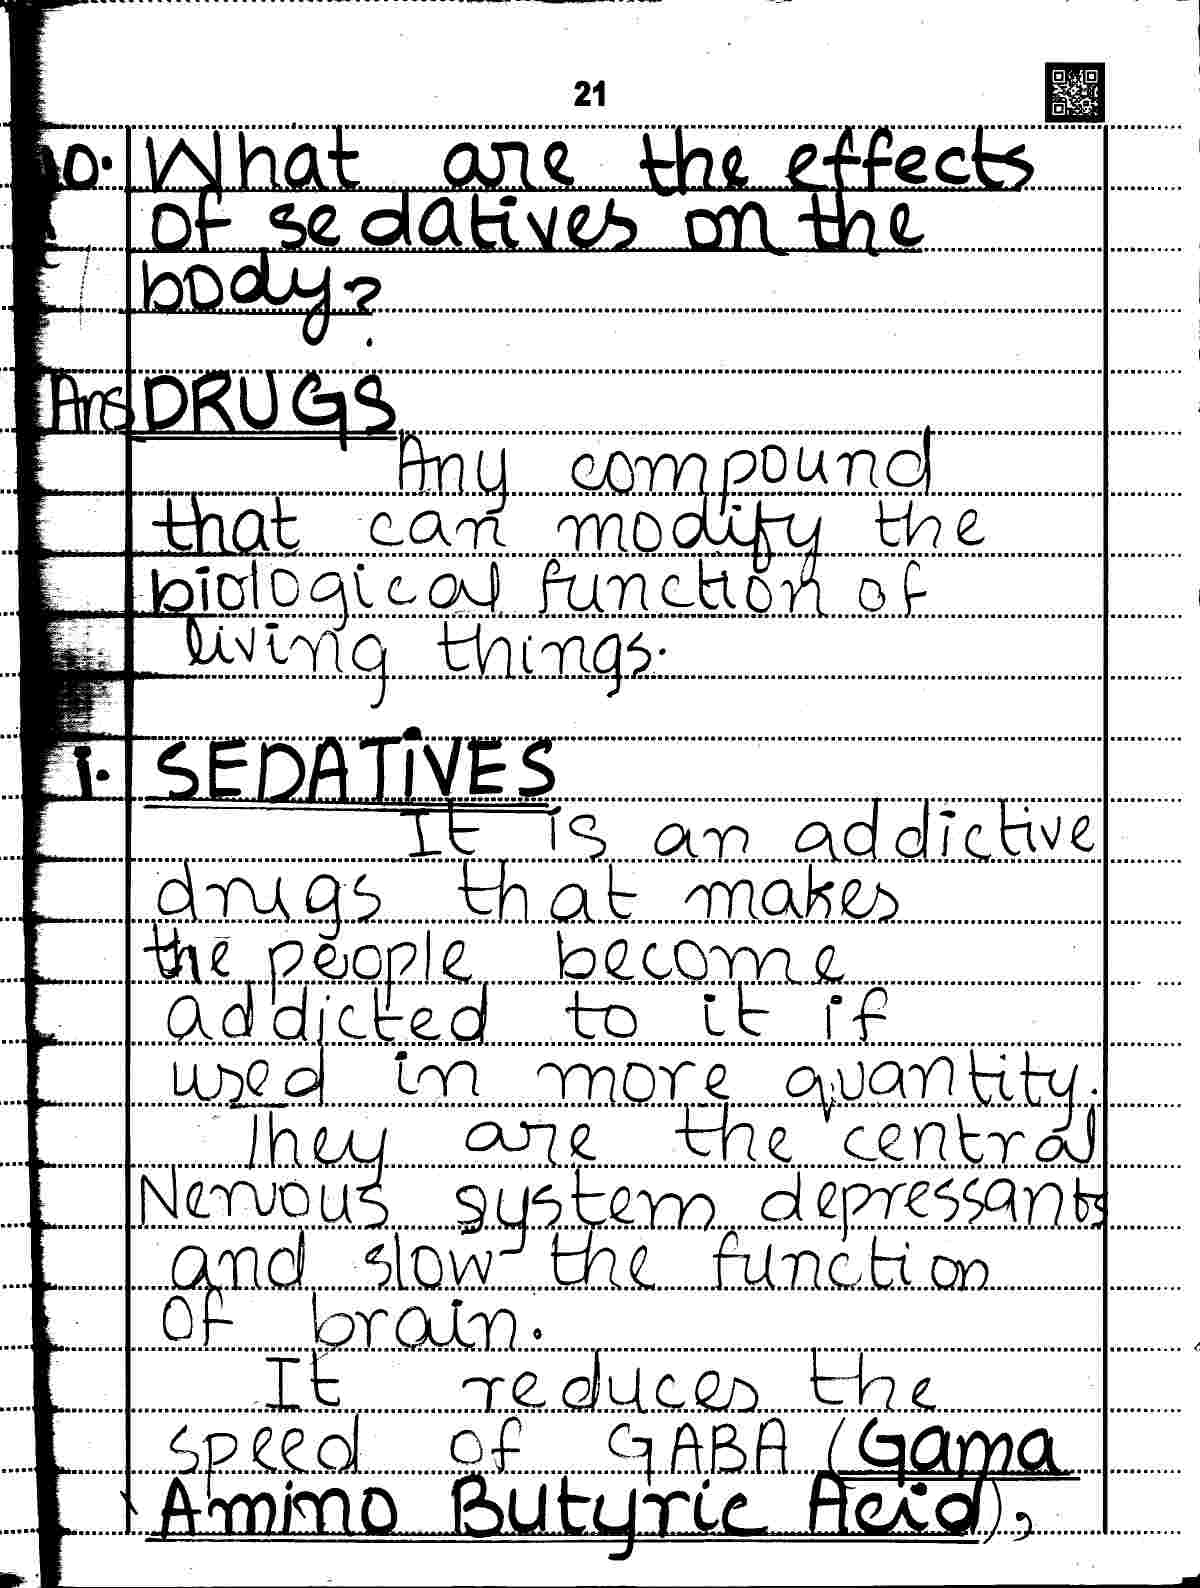 21
10. What are the effects
of sedatives on the
body?
Ans DRUGS
Any compound
that can modify the
biological function of
living things.
i. SEDATIVES
It is an addictive
drugs that makes
the people become
addicted to it if
used in more quantity.
They are the central
Nervous system depressants
and slow the function
of brain.
It reduces the
speed of GABA (Gama
Amino Butyric Acid),